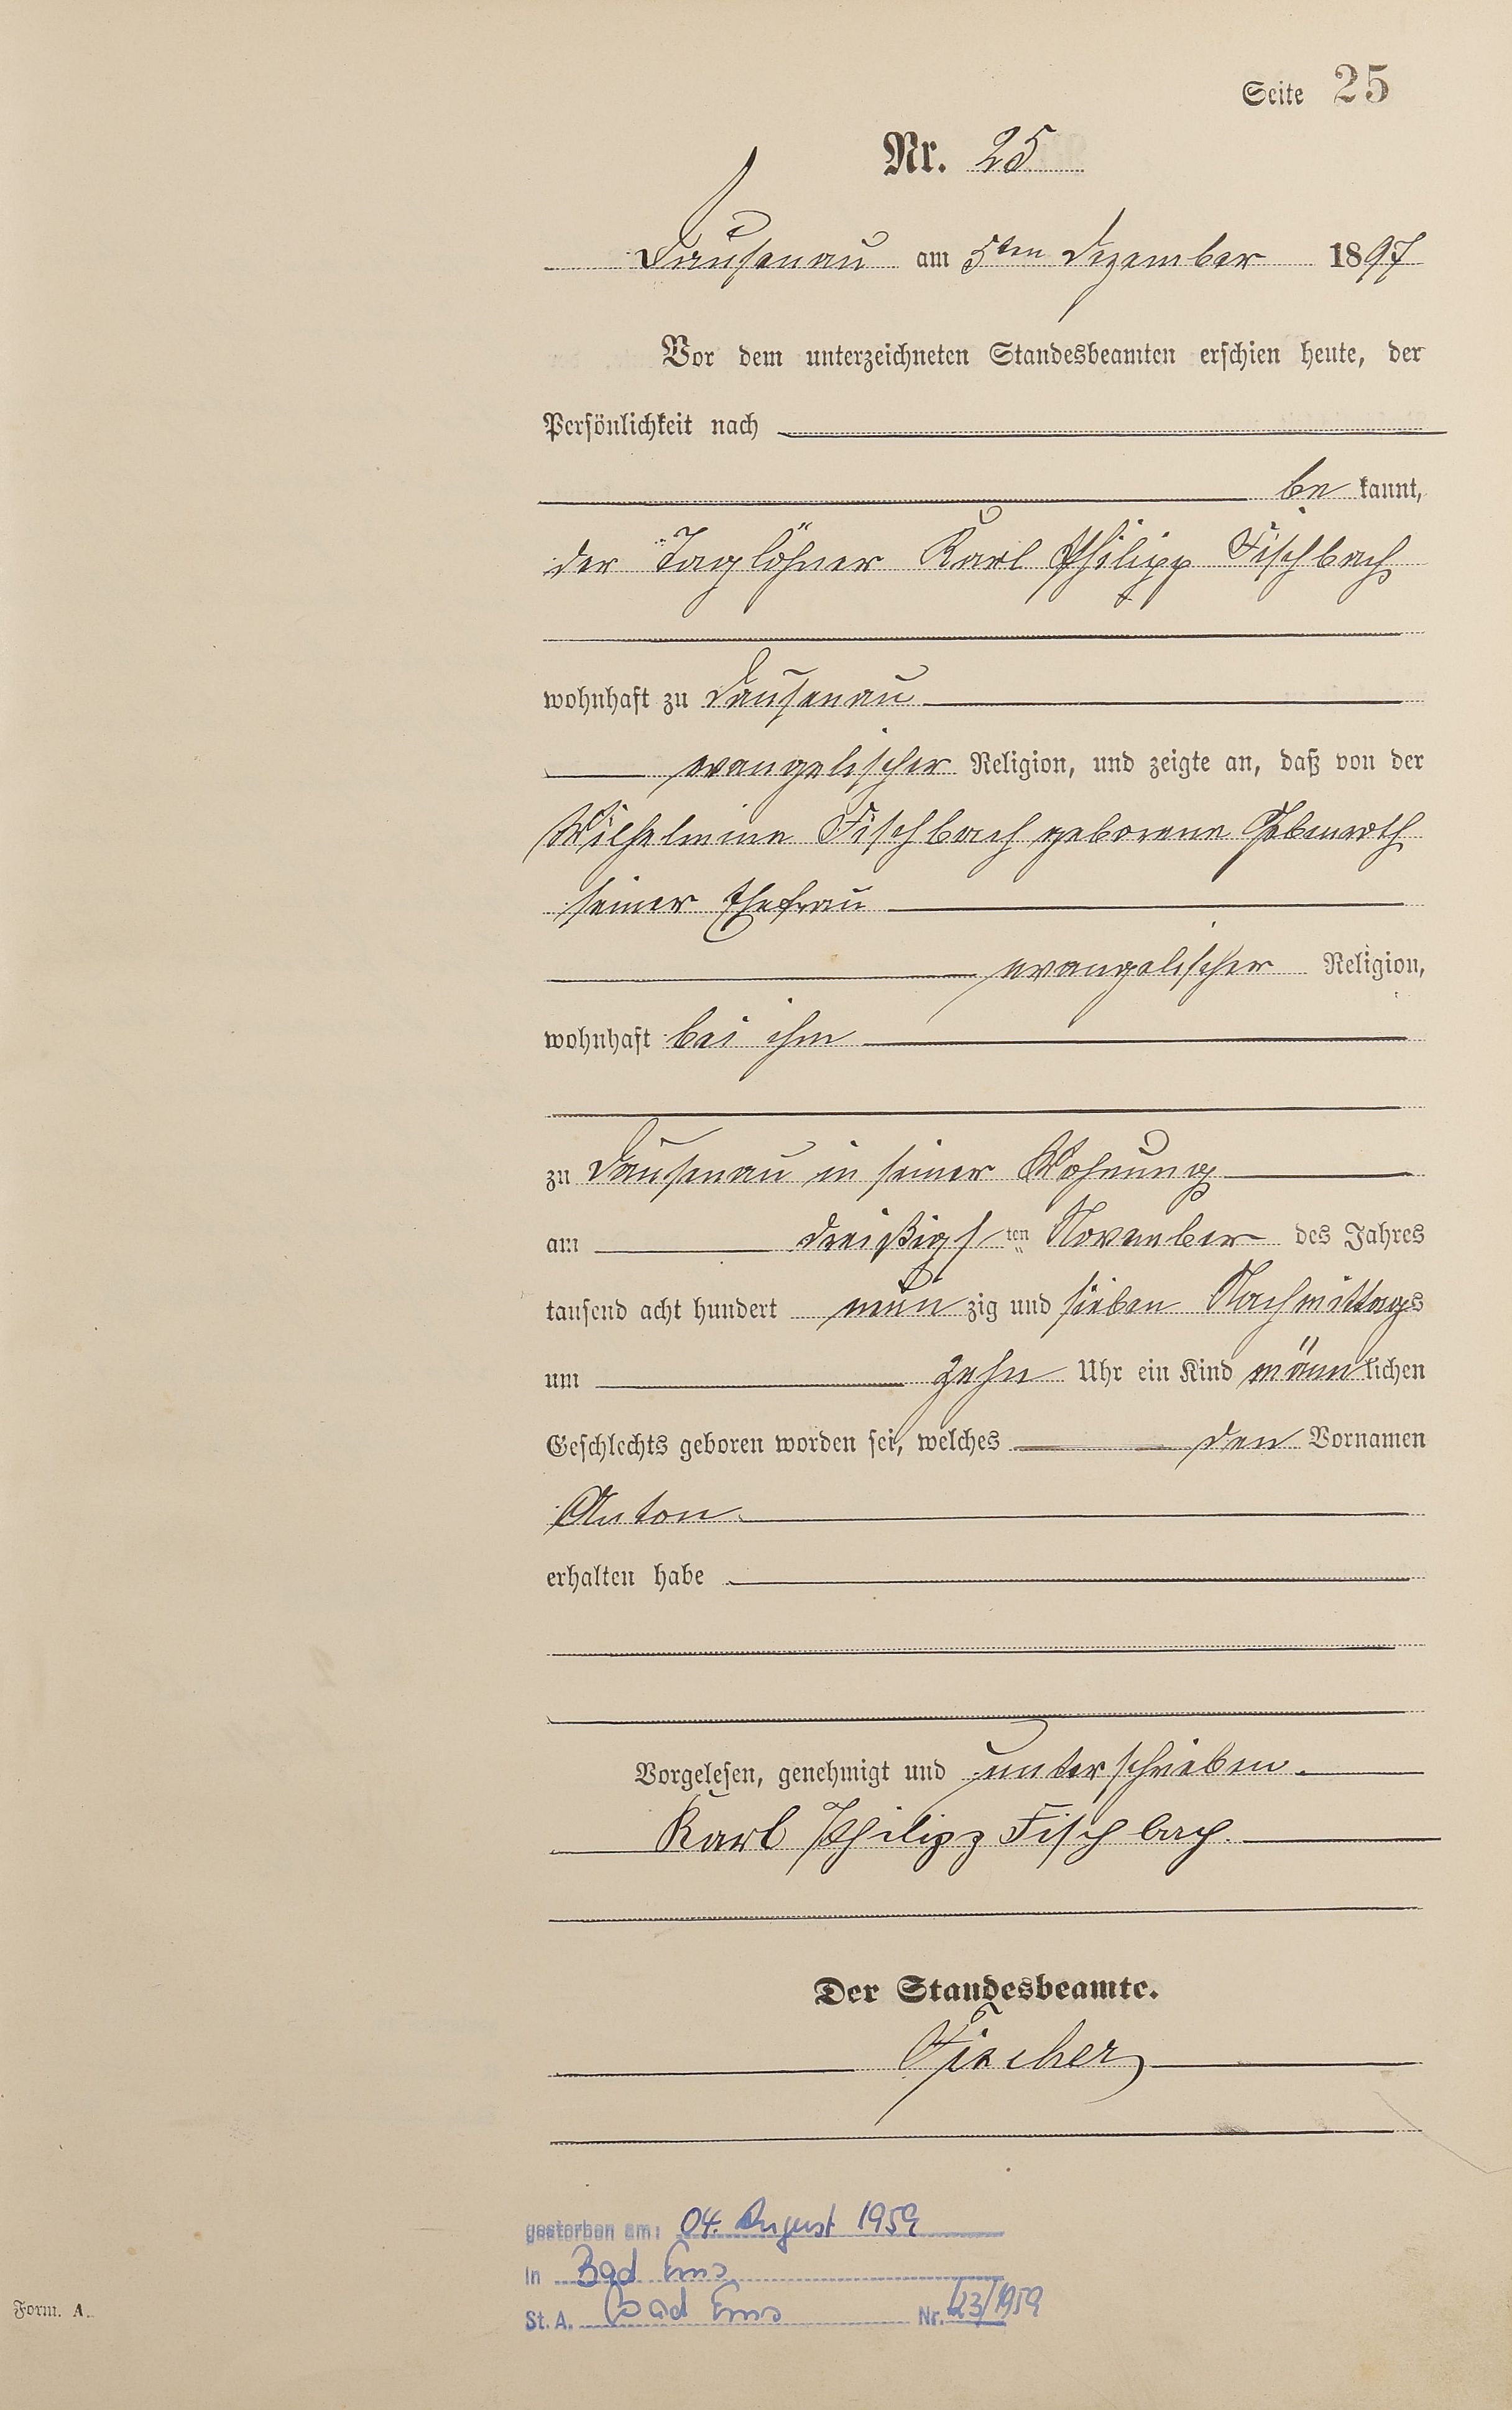 Seite 25
Nr. 25
Dausenau am 5ten Dezember 1897
Vor dem unterzeichneten Standesbeamten erschien heute, der
Persönlichkeit nach
be kannt,
der Taglöhner Karl Philipp Fischbach
wohnhaft zu Dausenau
evangelischer Religion, und zeigte an, daß von der
Wilhelmine Fischbach geborene
seiner Ehefrau
evangelischer Religion,
wohnhaft bei ihm
zu Dausenau in seiner Wohnung
am dreißigsten November des Jahres
tausend acht hundert neun zig und sieben Nachmittags
um zehn Uhr ein Kind männlichen
Geschlechts geboren worden sei, welches den Vornamen
Anton
erhalten habe
Vorgelesen, genehmigt und unterschrieben.
Karl Philipp Fischbach.
Der Standesbeamte.
Fischer
gestorben am: 04. August 1959
in Bad Ems
St. A. Bad Ems Nr. 123/1959
Form. A.